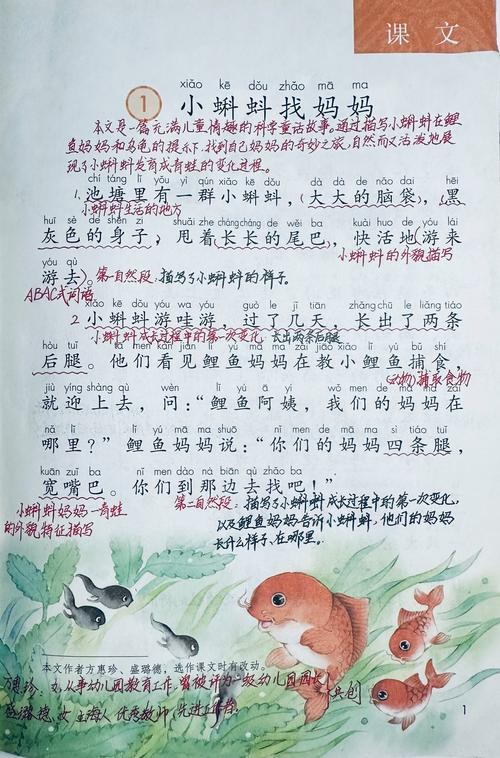 课文
xiǎo kē dǒu zhǎo mā ma
1 小蝌蚪找妈妈
本文是一篇充满儿童情趣的科学童话故事。通过描写小蝌蚪在鲤
鱼妈妈和乌龟的提示,找到自己妈妈的奇妙之旅,自然而又活泼地展
现了小蝌蚪发育成青蛙的变化过程。
chí táng lǐ yǒu yì qún xiǎo kē dǒu dà dà de nǎo dai hēi
1.池塘里有一群小蝌蚪,(大大的脑袋),黑
小蝌蚪生活的地方
huī sè de shēn zi shuǎi zhe cháng cháng de wěi ba kuài huo de yóu lái
灰色的身子,甩着长长的尾巴,快活地(游来
小蝌蚪的外貌描写
yóu qù
游去)。第一自然段:描写了小蝌蚪的样子。
ABAC式词语
xiǎo kē dǒu yóu wa yóu guò le jǐ tiān zhǎng chū le liǎng tiáo
2.小蝌蚪游哇游,过了几天,长出了两条
小蝌蚪成长过程中的第一次变化,长出两条后腿
hòu tuǐ tā men kàn jiàn lǐ yú mā ma zài jiāo xiǎo lǐ yú bǔ shí
后腿。他们看见鲤鱼妈妈在教小鲤鱼捕食,
(动物)捕取食物
jiù yíng shàng qù wèn lǐ yú ā yí wǒ men de mā ma zài
就迎上去,问:“鲤鱼阿姨,我们的妈妈在
nǎ lǐ lǐ yú mā ma shuō nǐ men de mā ma sì tiáo tuǐ
哪里?”鲤鱼妈妈说:“你们的妈妈四条腿,
kuān zuǐ ba nǐ men dào nà biān qù zhǎo ba
宽嘴巴。你们到那边去找吧!”
小蝌蚪妈妈—青蛙
的外貌特征描写
第二自然段:描写了小蝌蚪成长过程中的第一次变化,
以及鲤鱼妈妈告诉小蝌蚪,他们的妈妈
长什么样子、在哪里。
本文作者方惠珍、盛璐德,选作课文时有改动。
惠珍,女,从事幼儿园教育工作,曾被评为一级幼儿园园长
盛璐德,女,上海人,优秀教师,先进工作者
共创
1